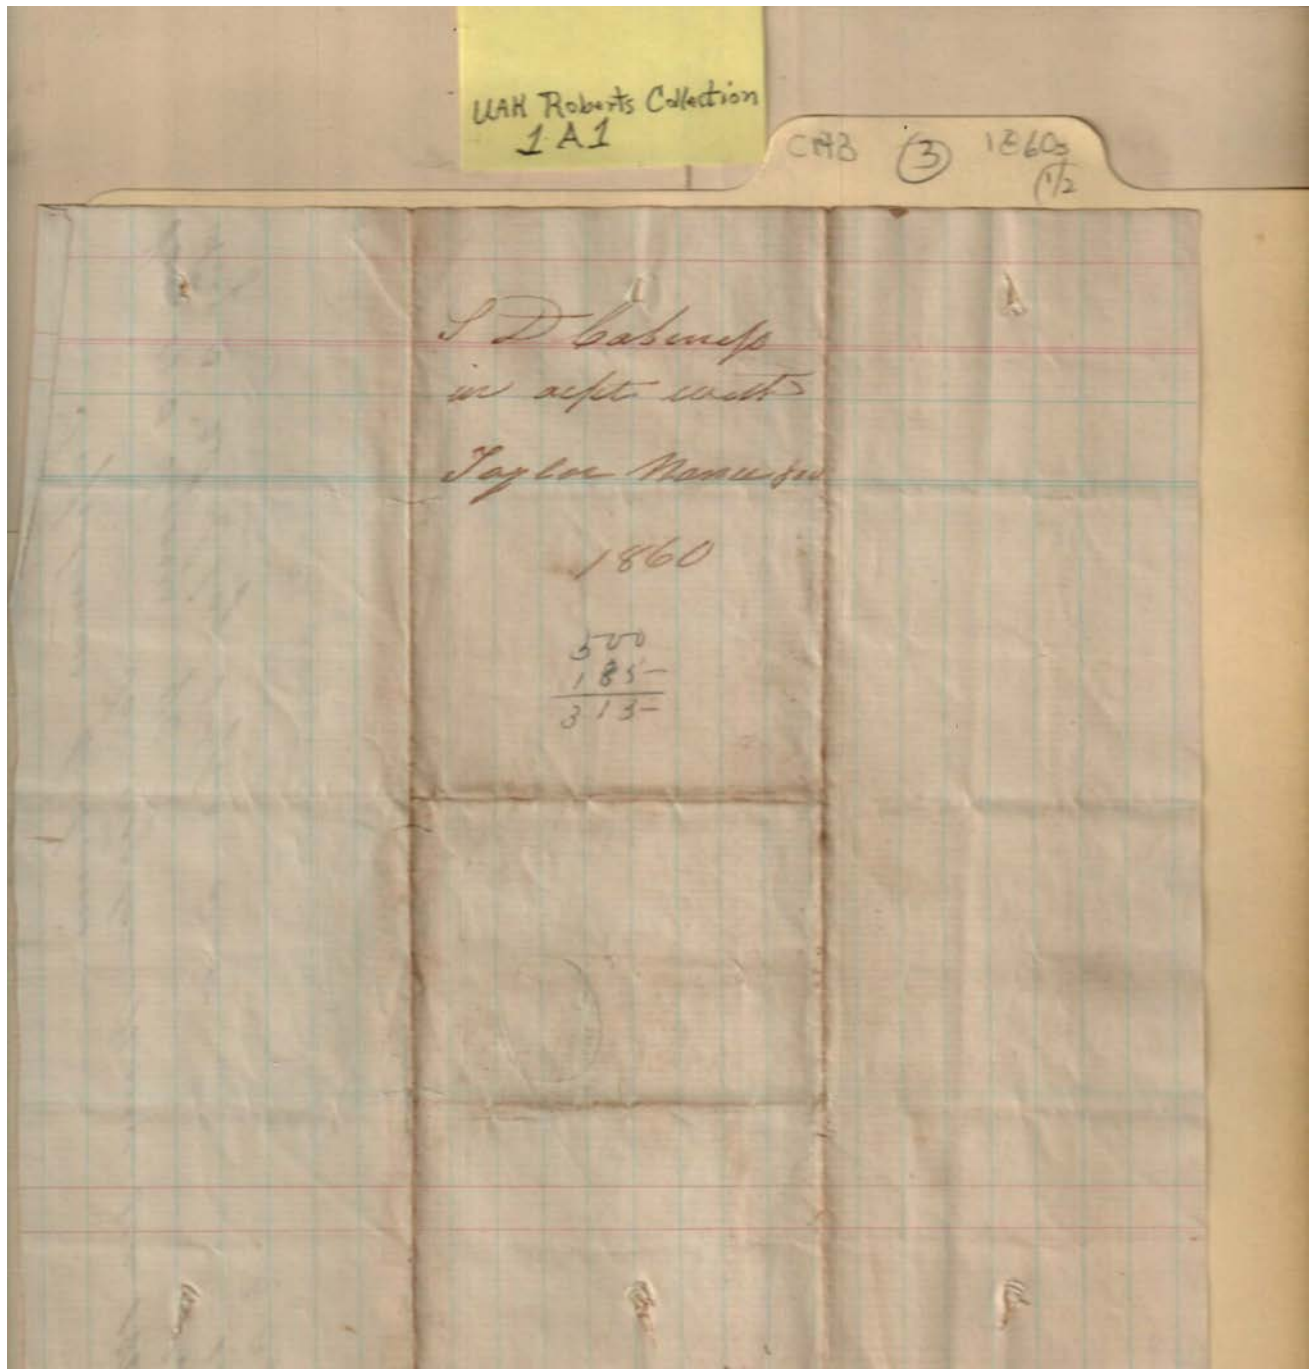 UAH Roberts Collection
1 A 1
CAB ③ 1860s
1/2
S D Cabiness
in acpt with
Taylor
1860
500
185-
313-